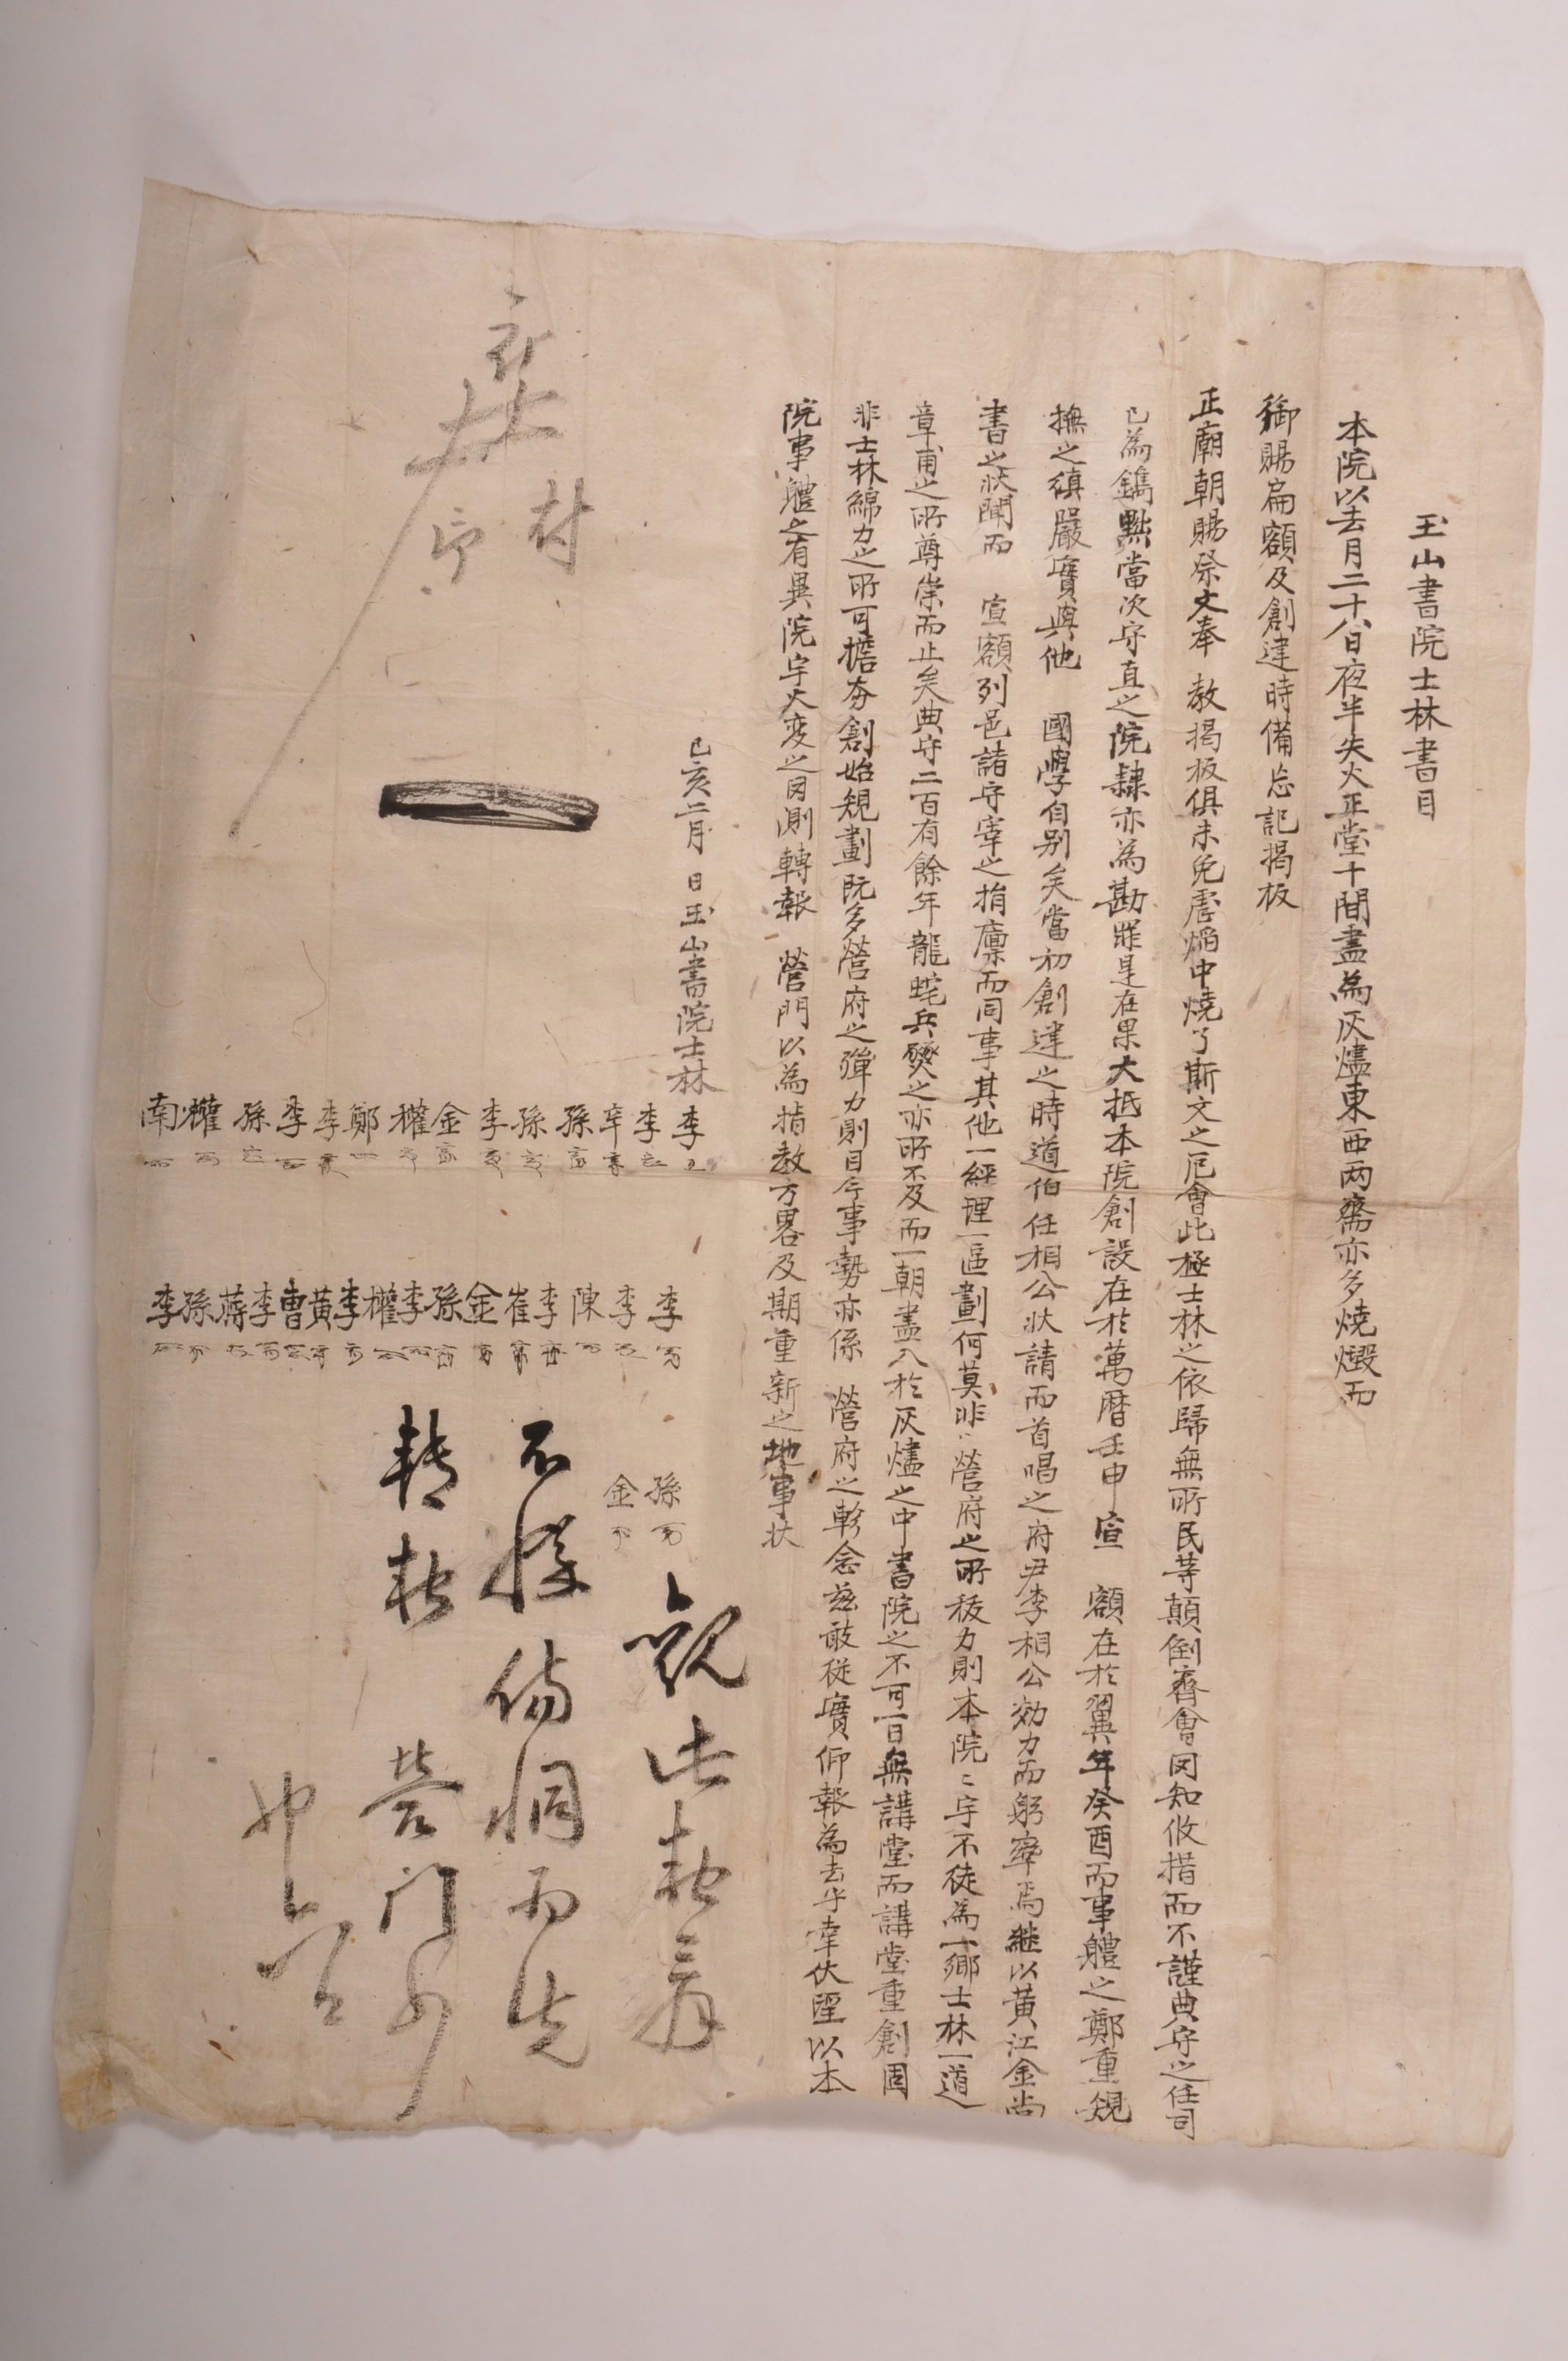 玉山書院士林書目
本院以去月二十八日夜半失火正堂十間盡為灰燼東西兩齋亦多燒燬而
御賜扁額及創建時備忘記揭板
正廟朝賜祭文奉 敎揭板俱未免虐焰中燒了斯文之厄會此極士林之依歸無所民等顚倒齊會罔知攸措而不謹典守之任司
已為鐫黜當次守直之院隷亦為勘罪是在果大抵本院創設在於萬曆壬申 宣 額在於翼年癸酉而事軆之鄭重規
撫之縝嚴實與他 國學自別矣當初創建之時道伯任相公狀請而首唱之府尹李相公効力而躬率焉繼以黃江金尙
書之狀聞而 宣額列邑諸守宰之捐廩而同事其他一經理一區劃何莫非 營府之所拔力則本院ゝ宇不徒為一鄉士林一道
章甫之所尊崇而止矣典守二百有餘年龍蛇兵燹之亦所不及而一朝盡入於灰燼之中書院之不可一日無講堂而講堂重創固
非士林綿力之所可擔夯創始規劃旣多營府之殫力則目今事勢亦係 營府之軫念玆敢從實仰報為去乎幸伏望以本
院事軆之有異院宇火变之罔測轉報 營門以為指敎方畧及期重新之地事狀
己亥二月 日玉山書院士林
李 李 辛 孫 孫 李 金 權 鄭 李 李 孫 權 南
李 李 陳 李 崔 金 孫 李 權 李 黃 曹 李 蔣 孫 李
孫 金
觀此報辭
不勝傷恫而先
轉報 營門